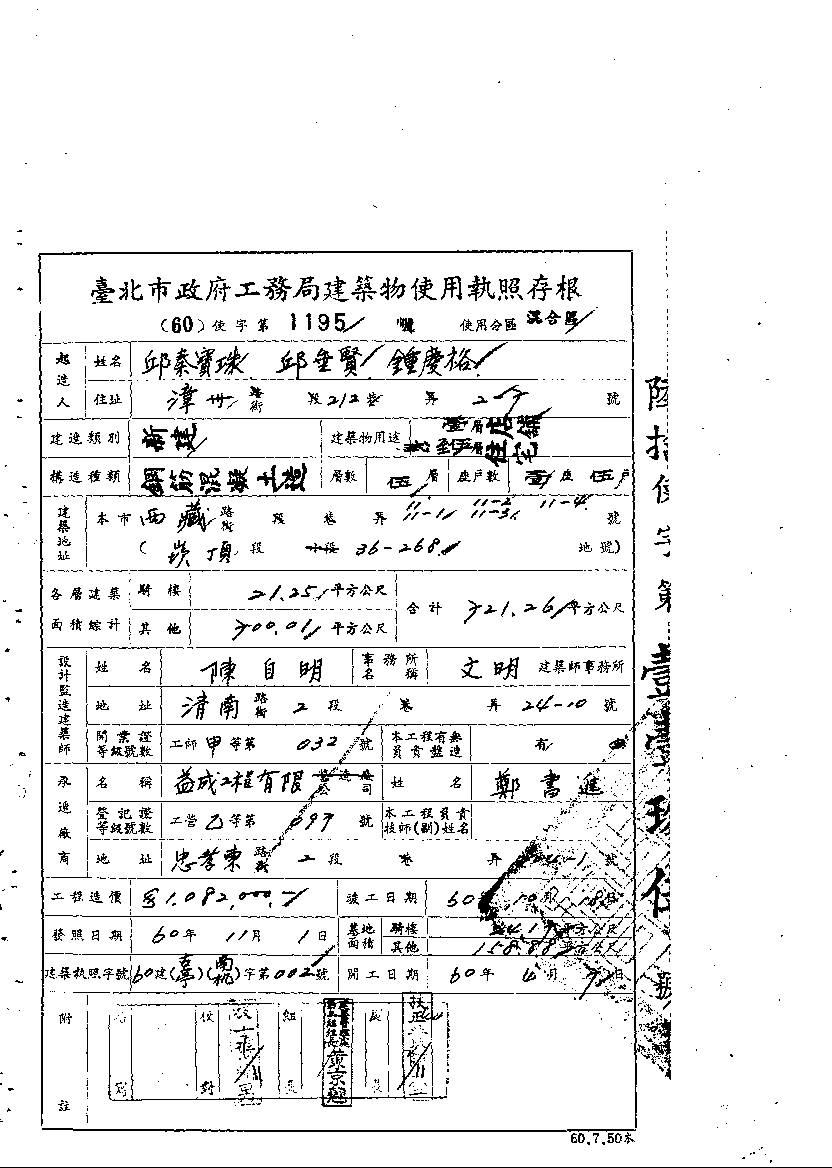 臺北市政府工務局建築物使用執照存根
(60)使字第 1195 號 使用分區 混合區
起造人 姓名 邱秦寶珠 邱垂賢 鍾慶裕
住址 漳州 路街 段 212 巷 弄 號
建造類別 新建 建築物用途 壹層店鋪 貳至伍層住宅
構造種類 鋼筋混凝土造 層數 伍 層 座戶數 壹 座 伍 戶
建築地址 本市 西藏 路街 段 巷 弄 11 11-1 11-2 11-3 11-4 號
( 崁頂 段 小段 36-268 地號)
各層建築面積綜計 騎樓 21.25 平方公尺 合計 721.26 平方公尺
其他 700.01 平方公尺
設計監造建築師 姓名 陳自明 事務所名稱 文明 建築師事務所
地址 濟南 路街 2 段 巷 弄 24-10 號
開業證等級號數 工師 甲 等第 032 號 本工程有無負責監造 有
承造廠商 名稱 益成工程有限 營造公司 姓名 鄭書進
登記證等級號數 工營 乙 等第 097 號 本工程負責技師(副)姓名
地址 忠孝東 路街 2 段 巷 弄 號
工程造價 $1,082,000.- 竣工日期 60年 10月 18日
發照日期 60年 11月 1日 基地面積 騎樓 平方公尺
其他 158.88 平方公尺
建築執照字號 60建( )( )字第 002 號 開工日期 60年 4月 日
附註 校對 組長 童京 處長
60.7.50本
陸拾使字第壹壹玖伍號